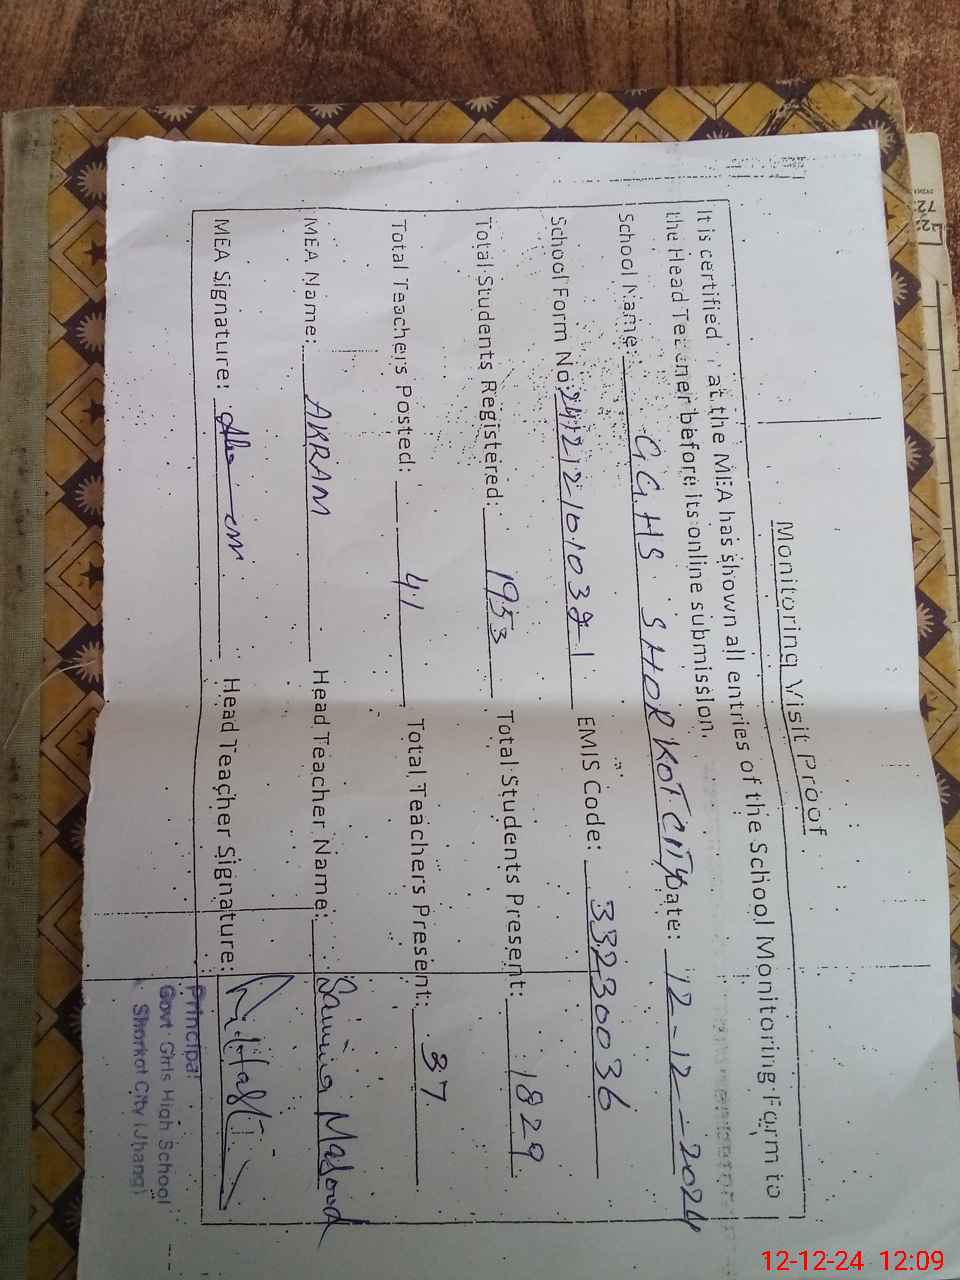 Monitoring Visit Proof
It is certified, at the MEA has shown all entries of the School Monitoring Form to
the Head Teacher before its online submission.
School Name: GGHS SHORKOT CITY Date: 12-12-2024
School Form No: EMIS Code: 33230036
Total Students Registered: 1953 Total Students Present: 1829
Total Teachers Posted: 41 Total Teachers Present: 37
MEA Name: AKRAM Head Teacher Name: Masood
MEA Signature: Head Teacher Signature:
Principal
Govt Girls High School
Shorkot City (Jhang)
12-12-24 12:09